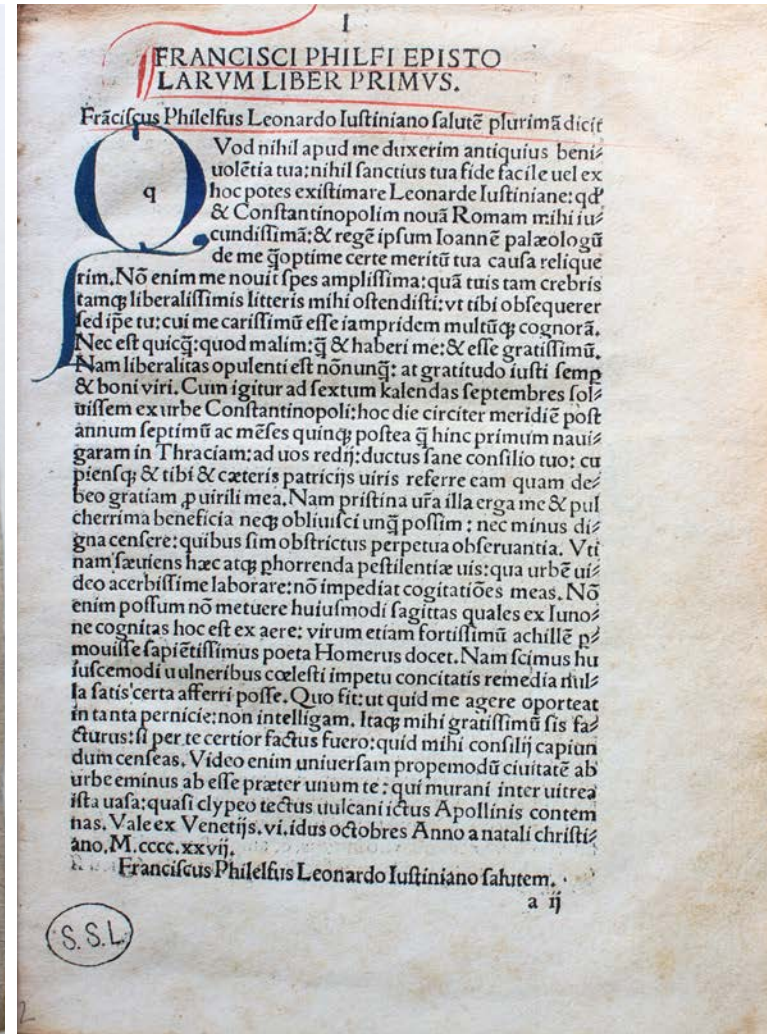 I
FRANCISCI PHILFI EPISTO
LARVM LIBER PRIMVS.
Frãciſcus Philelfus Leonardo Iuſtiniano ſalutẽ plurimã dicit
QVod nihil apud me duxerim antiquius beni⸗
q
uolẽtia tua: nihil ſanctius tua fide facile uel ex
hoc potes exiſtimare Leonarde Iuſtiniane: qđ
& Conſtantinopolim nouã Romam mihi iu⸗
cundiſſimã: & regẽ ipſum Ioannẽ palæologũ
de me q̃optime certe meritũ tua cauſa relique
rim. Nõ enim me nouit ſpes ampliſſima: quã tuis tam crebris
tamqꝫ liberaliſſimis litteris mihi oſtendiſti: vt tibi obſequerer
ſed ip̃e tu: cui me cariſſimũ eſſe iampridem multũqꝫ cognorã.
Nec eſt quicq̃: quod malim: q̃ & haberi me: & eſſe gratiſſimũ.
Nam liberalitas opulenti eſt nõnunq̃: at gratitudo iuſti ſemꝑ
& boni viri. Cum igitur ad ſextum kalendas ſeptembres ſol⸗
uiſſem ex urbe Conſtantinopoli: hoc die circiter meridiẽ poſt
annum ſeptimũ ac mẽſes quinqꝫ poſtea q̃ hinc primum naui⸗
garam in Thraciam: ad uos redij: ductus ſane conſilio tuo: cu
pienſqꝫ & tibi & cæteris patricijs uiris referre eam quam de⸗
beo gratiam ꝓ uirili mea. Nam priſtina ur̃a illa erga me & pul
cherrima beneficia neqꝫ obliuiſci unq̃ poſſim: nec minus di⸗
gna cenſere: quibus ſim obſtrictus perpetua obſeruantia. Vti
nam ſæuiens hæc atqꝫ ꝑhorrenda peſtilentiæ uis: qua urbẽ ui⸗
deo acerbiſſime laborare: nõ impediat cogitatiões meas. Nõ
enim poſſum nõ metuere huiuſmodi ſagittas quales ex Iuno⸗
ne cognitas hoc eſt ex aere: virum etiam fortiſſimũ achillẽ ꝑ⸗
mouiſſe ſapiẽtiſſimus poeta Homerus docet. Nam ſcimus hu
iuſcemodi uulneribus cœleſti impetu concitatis remedia nul⸗
la ſatis certa afferri poſſe. Quo fit: ut quid me agere oporteat
in tanta pernicie: non intelligam. Itaqꝫ mihi gratiſſimũ ſis fa⸗
cturus: ſi per te certior factus fuero: quid mihi conſilij capiun
dum cenſeas. Video enim uniuerſam propemodũ ciuitatẽ ab
urbe eminus ab eſſe præter unum te: qui murani inter uitrea
iſta uaſa: quaſi clypeo tectus uulcani ictus Apollinis contem
nas. Vale ex Venetijs. vi. idus octobres Anno a natali chriſti⸗
ano. M.cccc.xxvij.
Franciſcus Philelfus Leonardo Iuſtiniano ſalutem.
a ij
S. S. L.
2